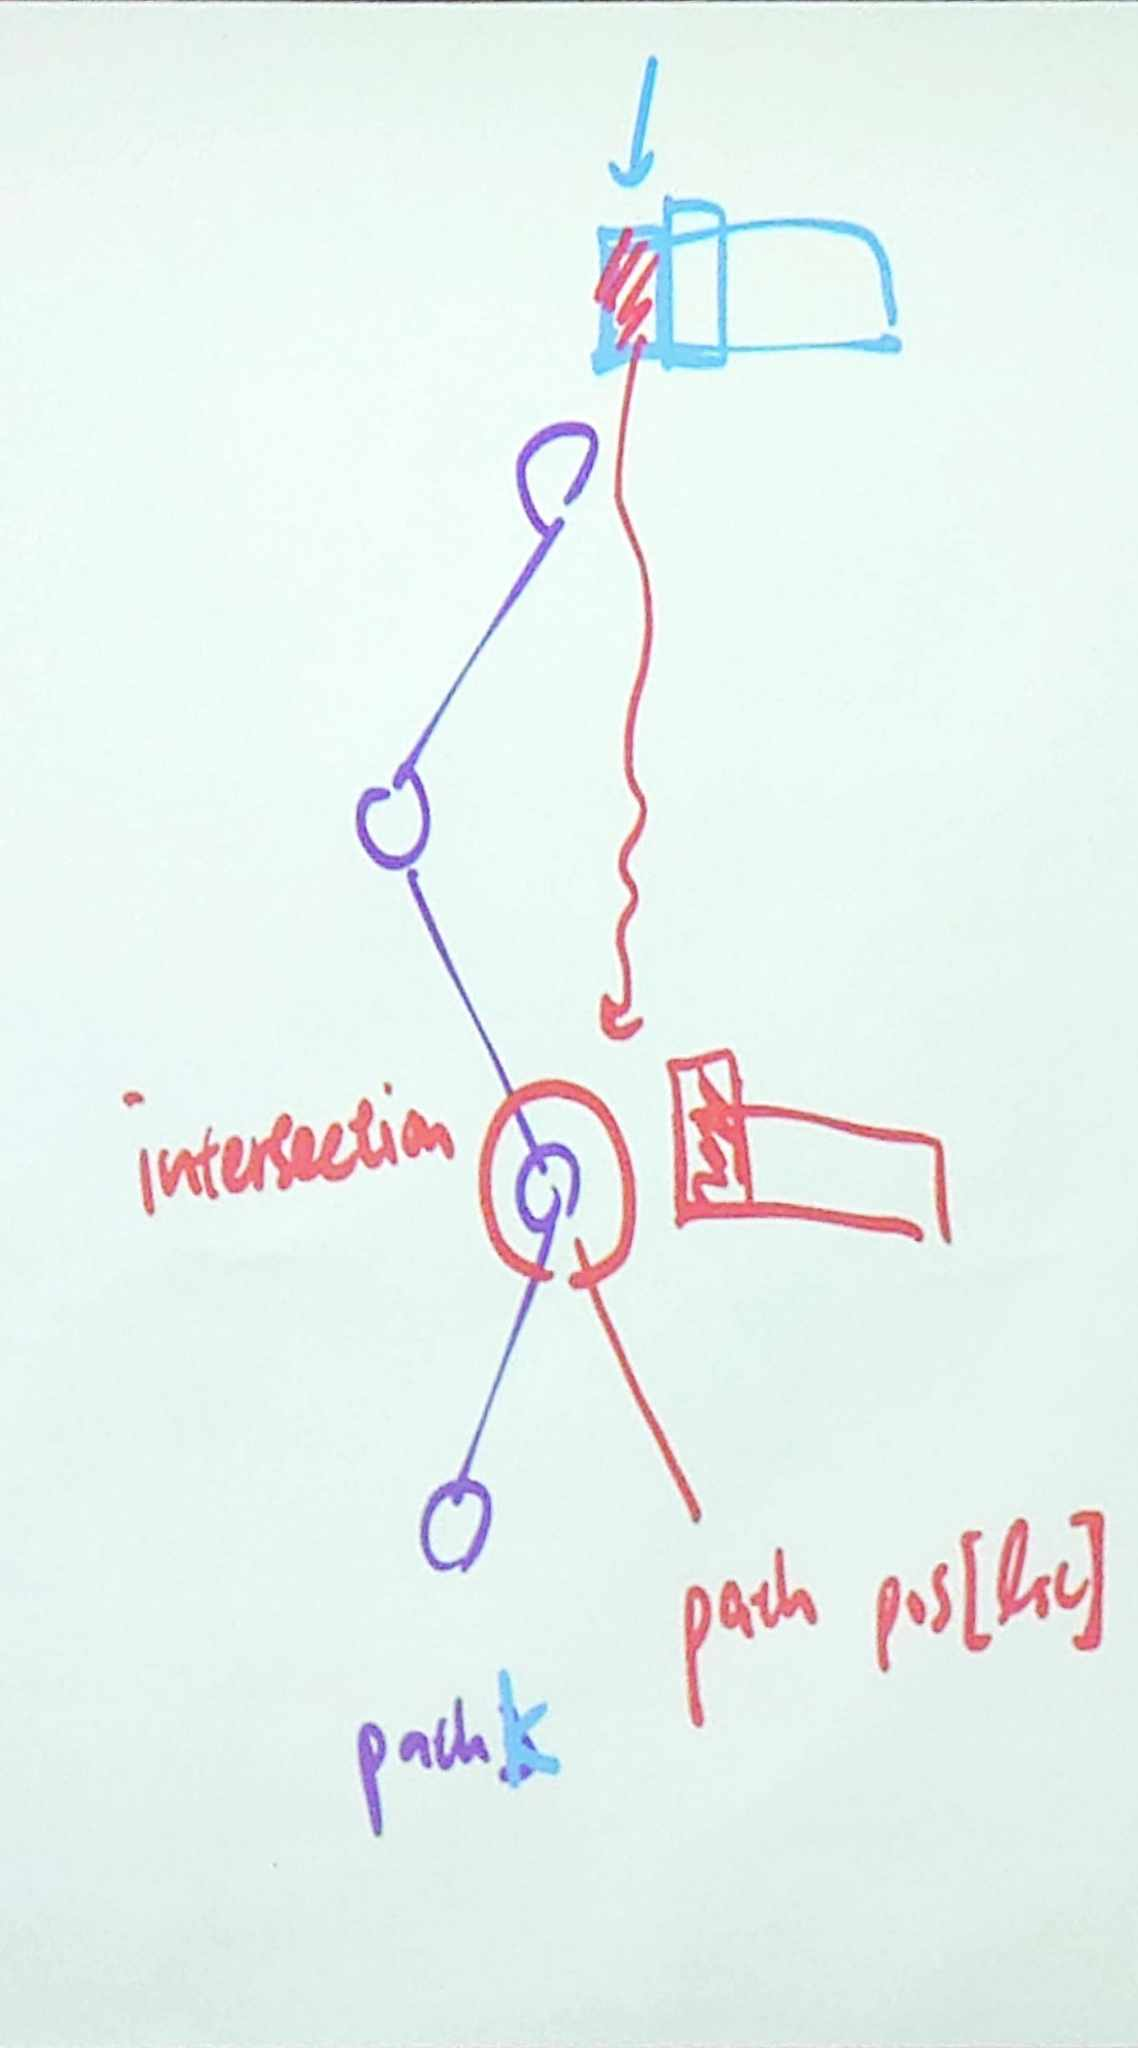 intersection
path pos[loc]
path k